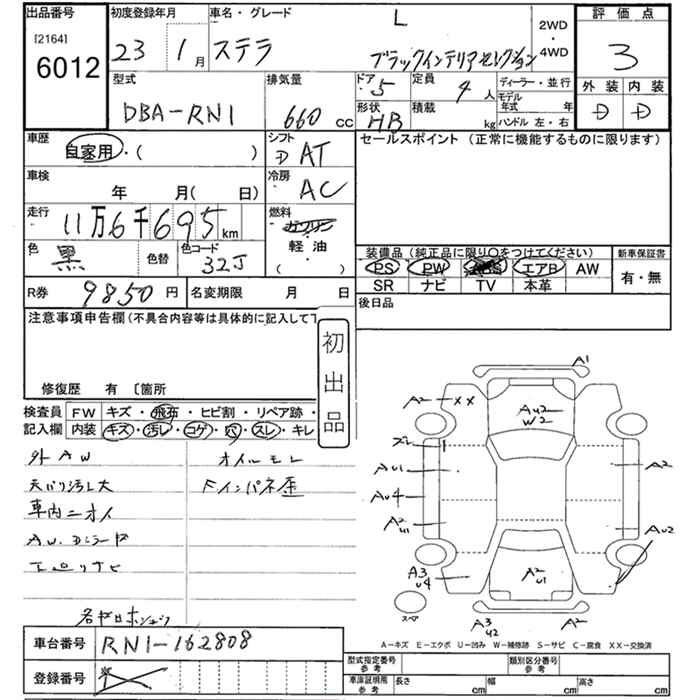 出品番号
[2164]
6012
初度登録年月
23 1月
車名・グレード
ステラ
L
ブラックインテリアセレクション
2WD
・
4WD
評価点
3
外装 内装
D D
型式
DBA-RN1
排気量
660 cc
ドア
・5
定員
4人
形状
HB
積載
kg
ディーラー・並行
モデル年式 年
ハンドル 左・右
車歴
自家用・( )
シフト
D AT
セールスポイント (正常に機能するものに限ります)
車検
年 月( 日)
冷房
AC
走行
11万6千695km
燃料
ガソリン
軽油
( )
色
黒
色替
色コード
32J
装備品 (純正品に限り○をつけてください)
PS PW ABS エアB AW
SR ナビ TV 本革
新車保証書
有・無
R券
9850円
名変期限 月 日
後日品
注意事項申告欄(不具合内容等は具体的に記入して下
修復歴 有 〔箇所
初出品
検査員
記入欄
FW キズ・飛石・ヒビ割・リペア跡・
内装 キズ・汚レ・コゲ・穴・スレ・キレ
外AW
オイルモレ
天バリ汚レ大
Fインパネ歪
車内ニオイ
A1
A2
XX
AU2
W2
AU1
A2
AU4
A2
U1
AU2
A3
U4
A2
U1
スペア
A3
U2
A2
A-キズ E-エクボ U-凹み W-補修跡 S-サビ C-腐食 XX-交換済
車台番号
RN1-162808
登録番号
型式指定番号
参考
類別区分番号
参考
車庫証明用
参考
長さ cm 幅 cm 高さ cm